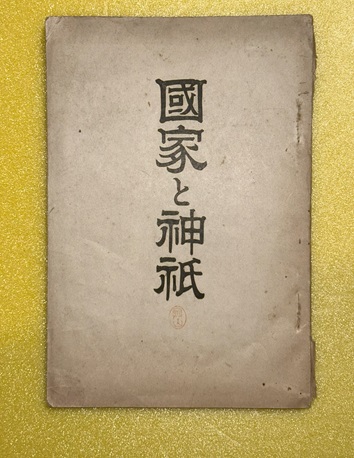 國家と神祇